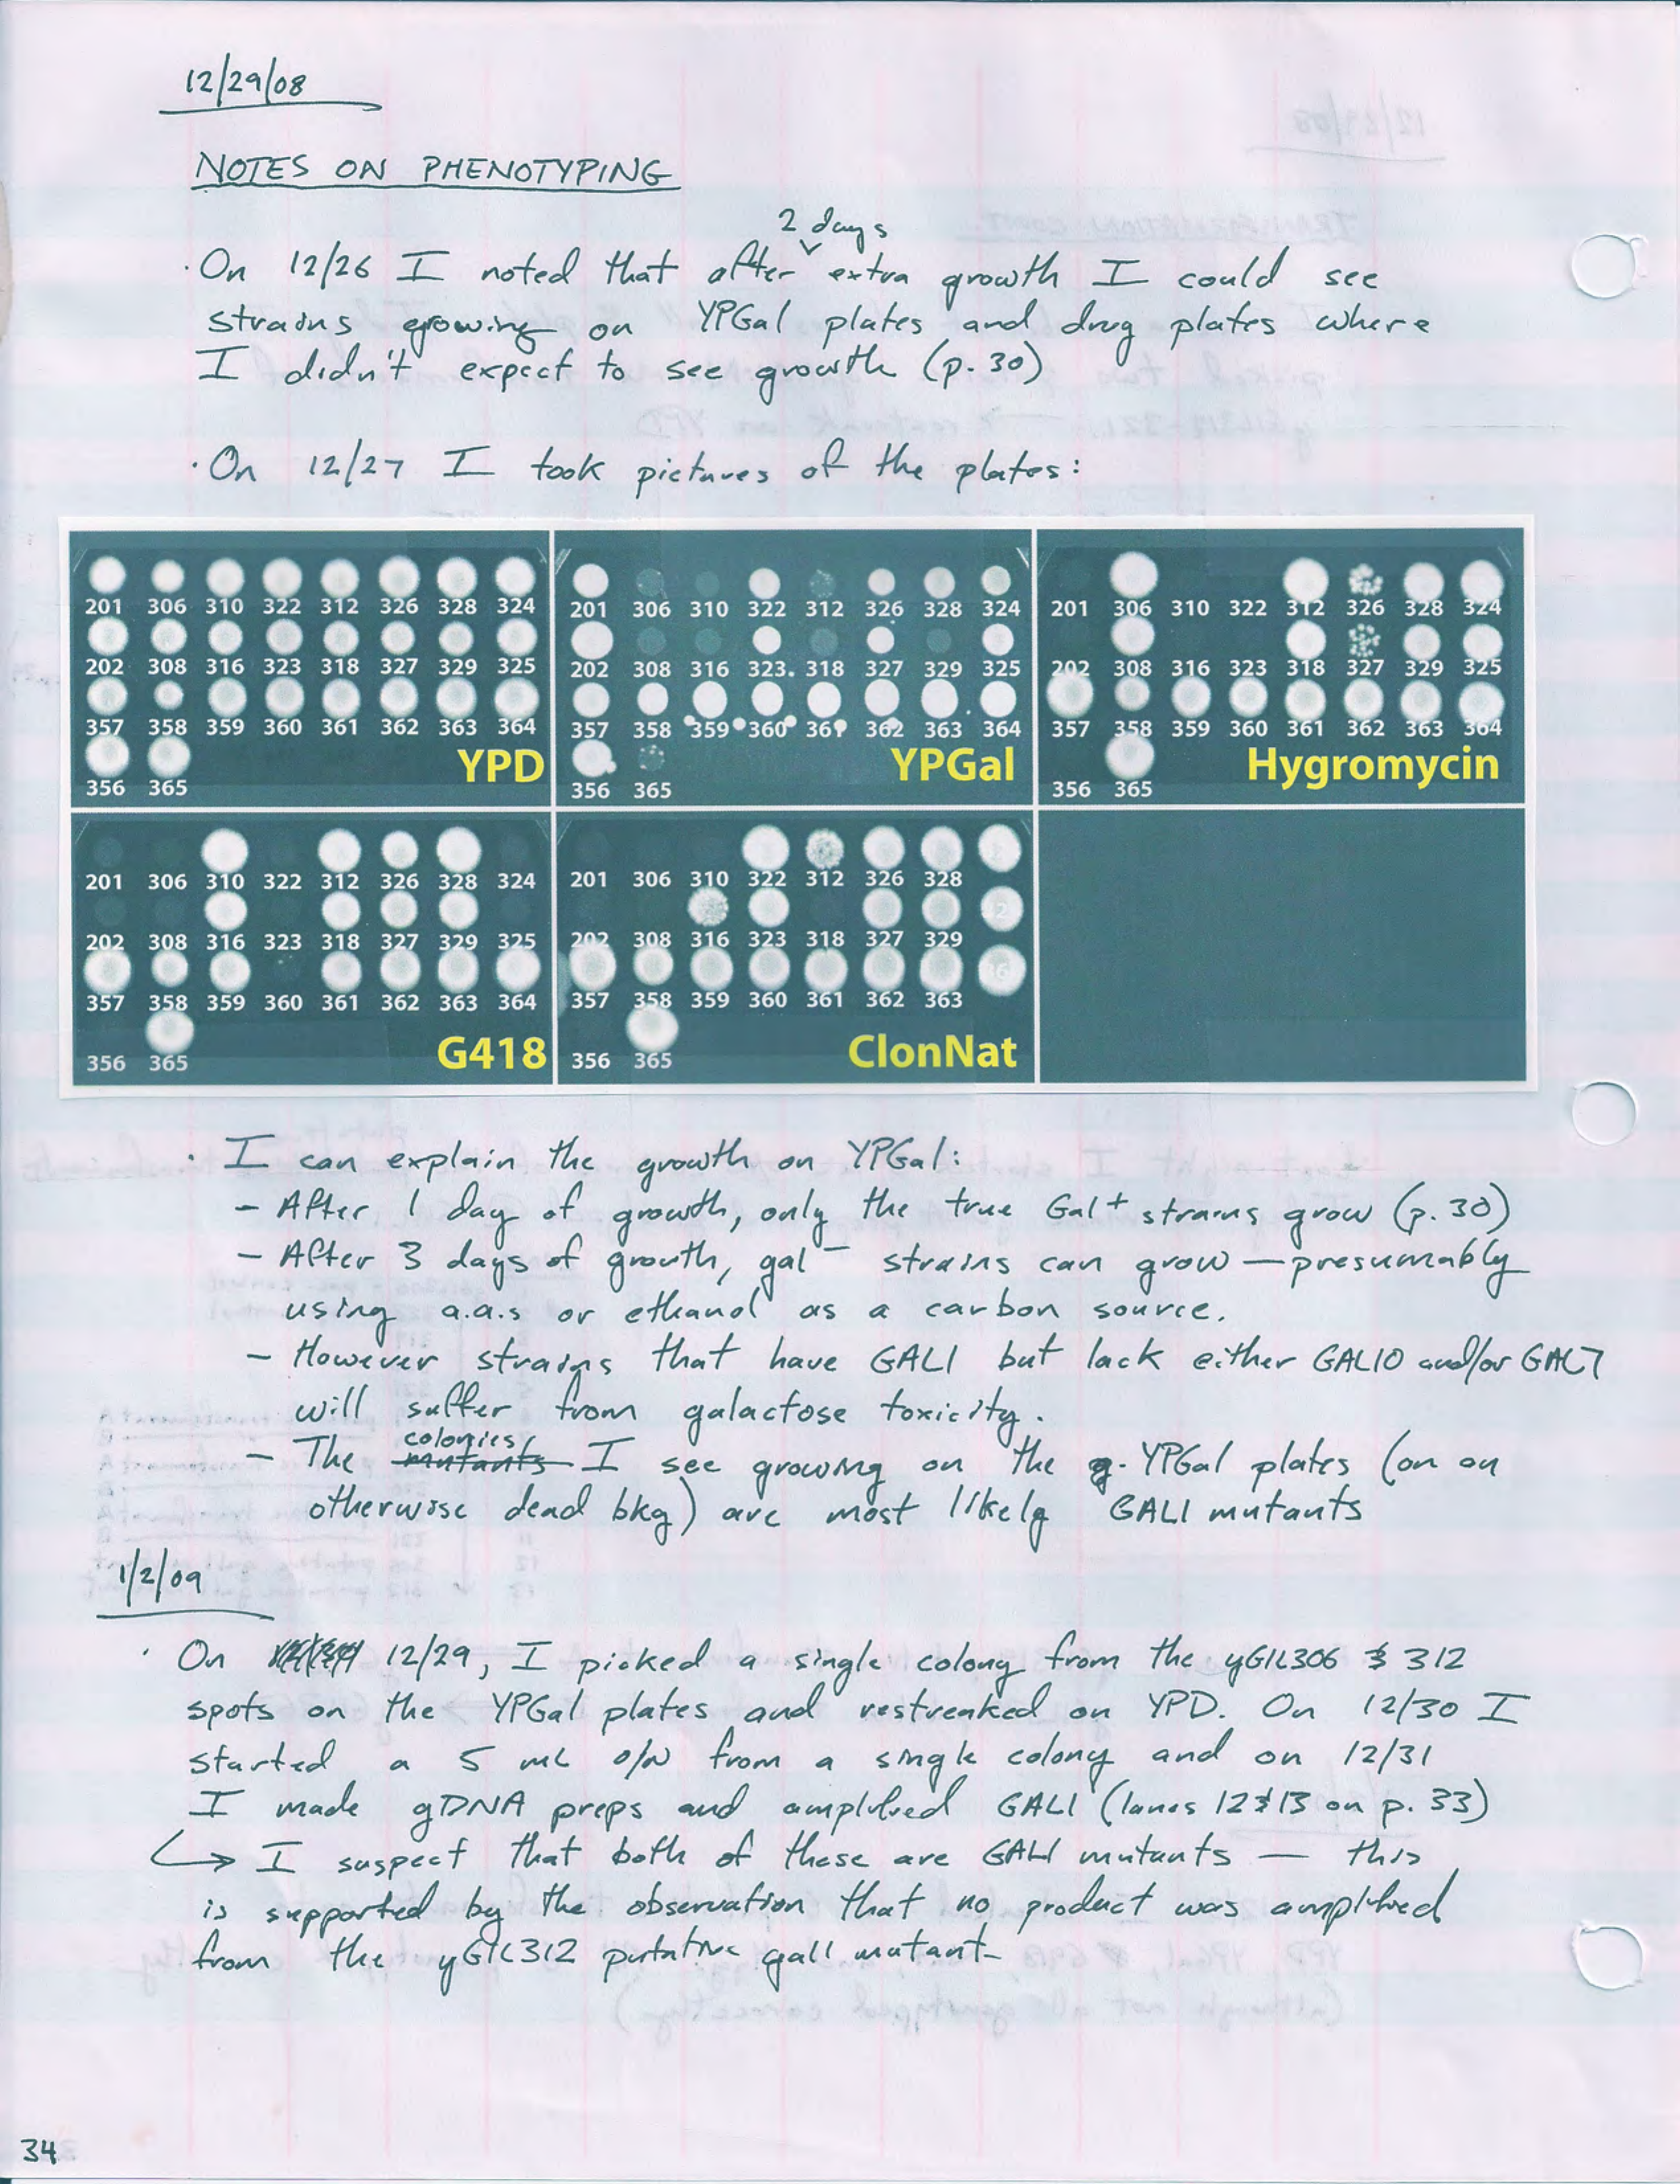 12/29/08
NOTES ON PHENOTYPING
2 days
· On 12/26 I noted that after extra growth I could see
strains growing on YPGal plates and drug plates where
I didn't expect to see growth (p. 30)
· On 12/27 I took pictures of the plates:
201 306 310 322 312 326 328 324
202 308 316 323 318 327 329 325
357 358 359 360 361 362 363 364
YPD
356 365
201 306 310 322 312 326 328 324
202 308 316 323. 318 327 329 325
357 358 359 360 361 362 363 364
YPGal
356 365
201 306 310 322 312 326 328 324
202 308 316 323 318 327 329 325
357 358 359 360 361 362 363 364
Hygromycin
356 365
201 306 310 322 312 326 328 324
202 308 316 323 318 327 329 325
357 358 359 360 361 362 363 364
G418
356 365
201 306 310 322 312 326 328
202 308 316 323 318 327 329
357 358 359 360 361 362 363
ClonNat
356 365
· I can explain the growth on YPGal:
– After 1 day of growth, only the true Gal+ strains grow (p. 30)
– After 3 days of growth, gal– strains can grow — presumably
using a.a.s or ethanol as a carbon source.
– However strains that have GAL1 but lack either GAL10 and/or GAL7
will suffer from galactose toxicity.
– The mutants colonies I see growing on the YPGal plates (on an
otherwise dead bkg) are most likely GAL1 mutants
1/2/09
· On 12/29, I picked a single colony from the yGIL306 & 312
spots on the YPGal plates and restreaked on YPD. On 12/30 I
started a 5 mL o/N from a single colony and on 12/31
I made gDNA preps and amplified GAL1 (lanes 12 & 13 on p. 33)
↳ I suspect that both of these are GAL1 mutants — this
is supported by the observation that no product was amplified
from the yGIL312 putative gal1 mutant–
34